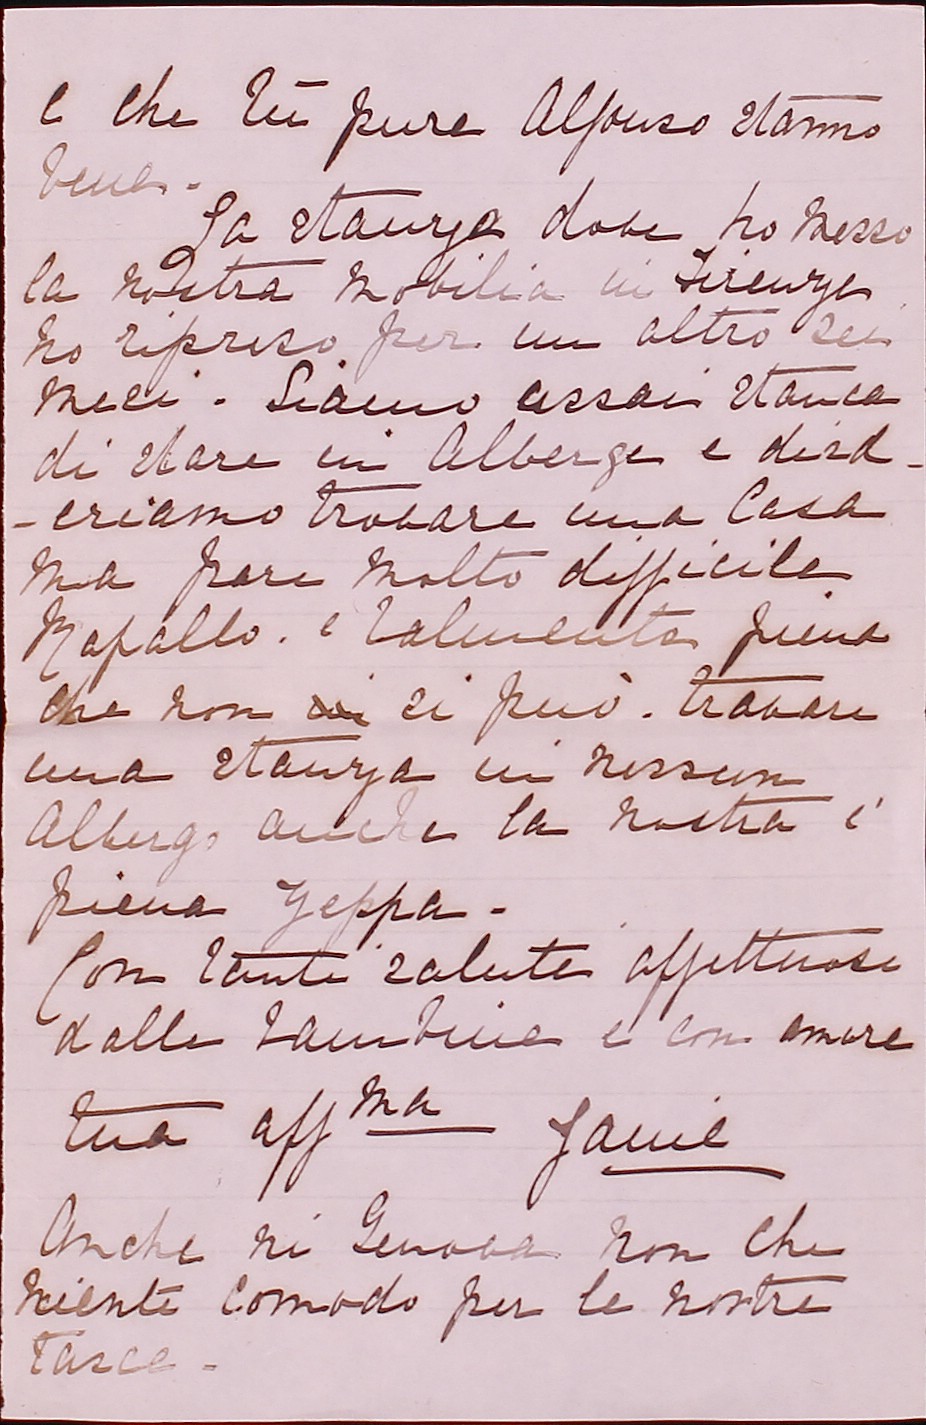 e che tu pure Alfonso stanno
bene -
La stanza dove ho messo
la nostra mobilia in Firenze
ho ripreso per un altro sei
mesi - Siamo assai stanca
di stare in Alberge e disd-
-eriamo trovare una Casa
ma pare molto difficile
Rapallo. e talmente piena
che non si può. trovare
una stanza in nessun
Albergo anche la nostra e'
piena zeppa -
Con tanti saluti affettuosi
dalle bambine e con amore
tua affma Janie
Anche ni Genova non che
niente comodo per le nostre
tasce -